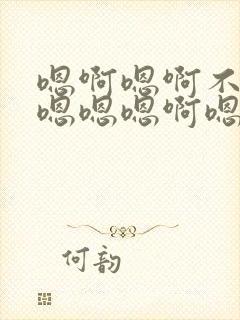 嗯啊嗯啊不
嗯嗯嗯啊嗯
何韵